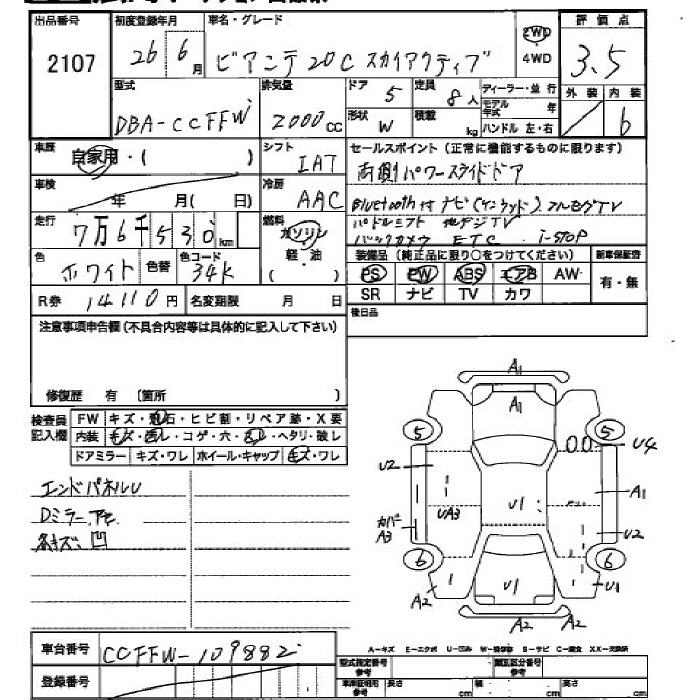 出品番号 初度登録年月 車名・グレード 評価点
2107 26年 6月 ビアンテ 20C スカイアクティブ 2WD 4WD 3.5
型式 排気量 ドア 定員 ディーラー・並行 外装 内装
DBA-CCFFW 2000cc 5 8人 モデル年式 年 6
形状 W 積載 kg ハンドル 左・右
車歴 自家用・( ) シフト IAT セールスポイント (正常に機能するものに限ります)
両側パワースライドドア
車検 年 月( 日) 冷房 AAC
Bluetooth付ナビ(ケンウッド).フルセグTV
走行 7万6千530km 燃料 ガソリン 軽・油 ( )
パドルシフト 地デジTV
バックカメラ ETC i-stop
色 ホワイト 色替 色コード 34K
装備品 (純正品に限り○をつけてください) 新車保証書
PS PW ABS エアB AW 有・無
SR ナビ TV カワ
R券 14110円 名変期限 月 日
後日品
注意事項申告欄(不具合内容等は具体的に記入して下さい)
修復歴 有 [箇所 ]
検査員記入欄 FW キズ・飛石・ヒビ割・リペア跡・X要
内装 キズ・ヨゴレ・コゲ・穴・ヘタリ・破レ
ドアミラー キズ・ワレ ホイール・キャップ キズ・ワレ
エンドパネルU
Dミラー
凹
A1
A1
5 5 U4
U2 A1
UA3 U1
カバー A3 U2
6 6
1 U1 U1
A2 A2 A2
車台番号 CCFFW-109882
登録番号
A-キズ E-エクボ U-凹み S-サビ C-腐食 XX-交換済
型式指定番号 参考 類別区分番号 参考
長さ cm 幅 cm 高さ cm